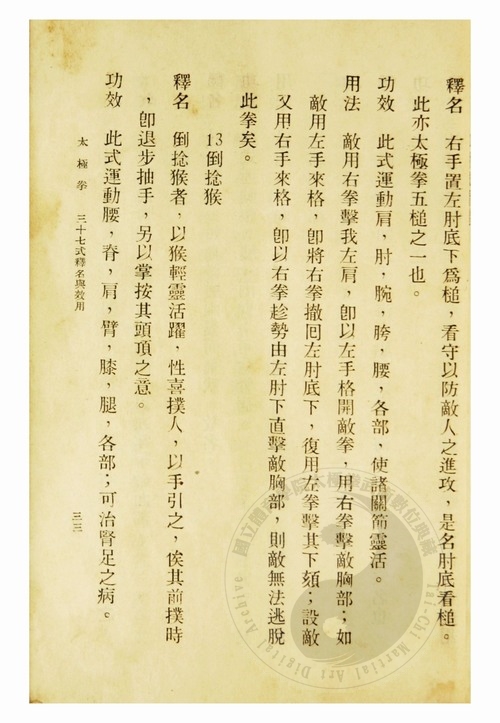 釋名　右手置左肘底下爲槌，看守以防敵人之進攻，是名肘底看槌。
此亦太極拳五槌之一也。
功效　此式運動肩，肘，腕，胯，腰，各部，使諸關節靈活。
用法　敵用右拳擊我左肩，卽以左手格開敵拳，用右拳擊敵胸部；如
敵用左手來格，卽將右拳撤回左肘底下，復用左拳擊其下頦；設敵
又用右手來格，卽以右拳趁勢由左肘下直擊敵胸部，則敵無法逃脫
此拳矣。
13倒捻猴
釋名　倒捻猴者，以猴輕靈活躍，性喜撲人，以手引之，俟其前撲時
，卽退步抽手，另以掌按其頭頂之意。
功效　此式運動腰，脊，肩，臂，膝，腿，各部；可治腎足之病。
太極拳　三十七式釋名與效用
三三
國立體育學院太極拳武藝數位典藏
Tai-Chi Martial Art Digital Archive